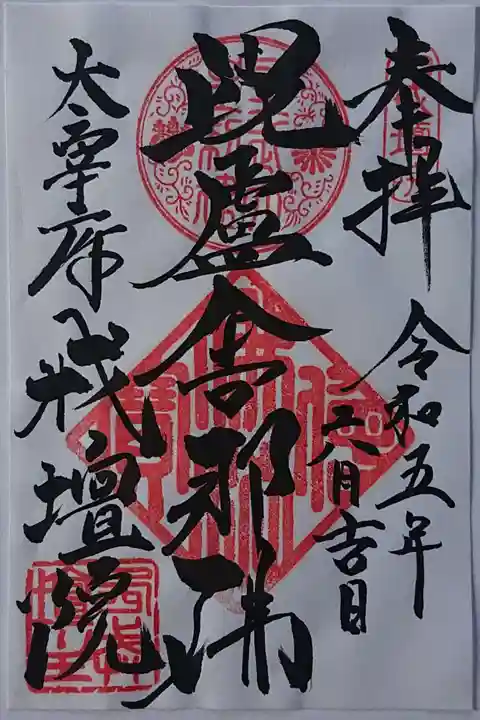 奉拝
令和五年
六月吉日
毘盧舎那佛
太宰府戒壇院